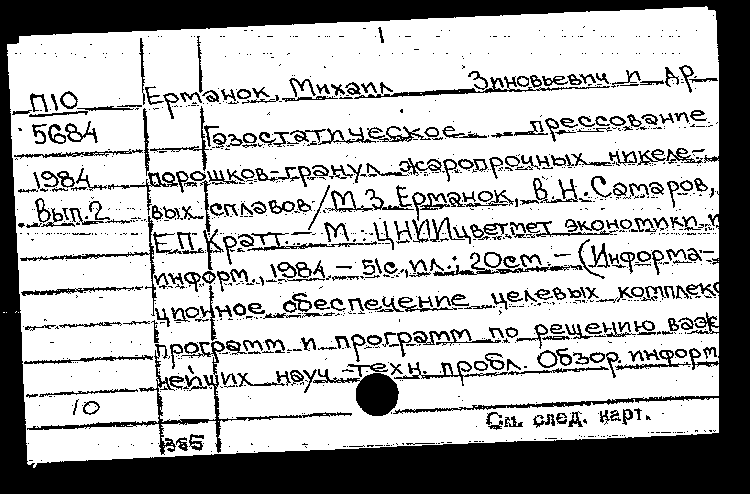 Ерманок, Михаил Зиновьевич и др
П10
5684
1984
Вып.2
Газостатическое прессование
порошков-гранул жаропрочных никеле-
вых сплавов / М.З.Ерманок, В.Н.Самаров,
Е.П.Кратт. – М.: ЦНИИцветмет экономики и
информ., 1984. – 51с., ил.; 20см. – (Информа-
ционное обеспечение целевых комплекс
программ и программ по решению важ
нейших науч.-техн. пробл. Обзор. информ
10
См. след. карт.
365